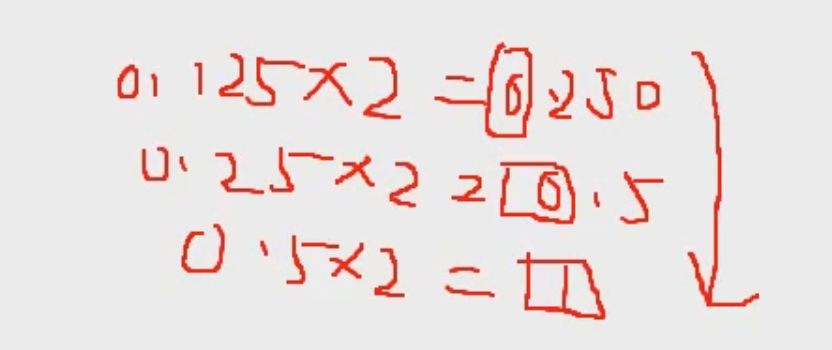 0.125×2=0.250
0.25×2=0.5
0.5×2=1